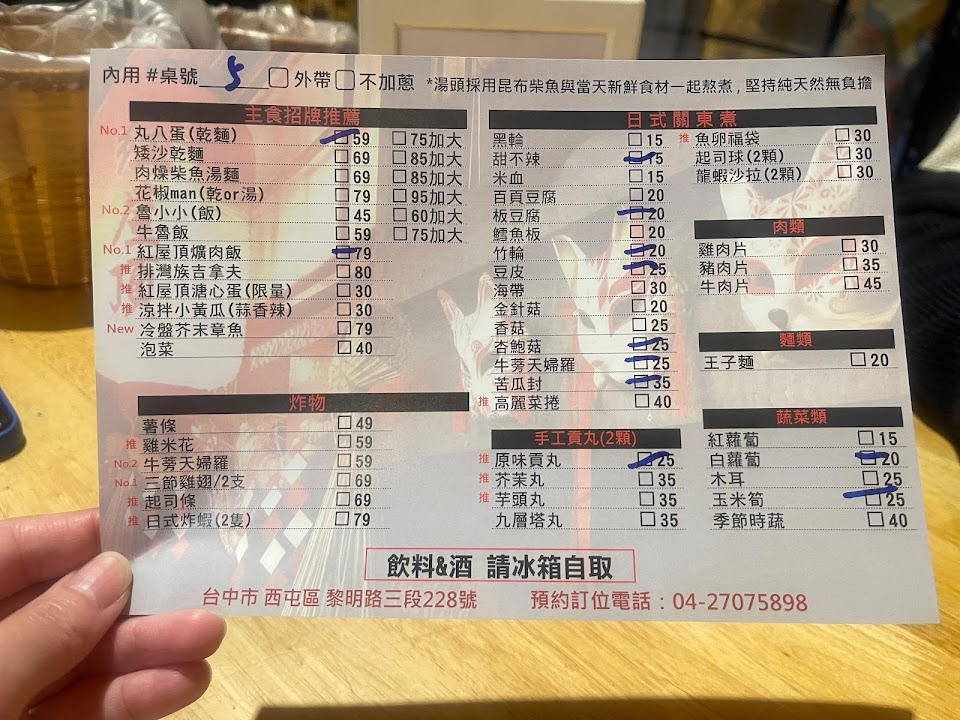 內用 #桌號 5 □外帶 □不加蔥 *湯頭採用昆布柴魚與當天新鮮食材一起熬煮,堅持純天然無負擔
主食招牌推薦
No.1 丸八蛋(乾麵) □59 □75加大
矮沙乾麵 □69 □85加大
肉燥柴魚湯麵 □69 □85加大
花椒man(乾or湯) □79 □95加大
No.2 魯小小(飯) □45 □60加大
牛魯飯 □59 □75加大
No.1 紅屋頂爌肉飯 □79
推 排灣族吉拿夫 □80
推 紅屋頂溏心蛋(限量) □30
推 涼拌小黃瓜(蒜香辣) □30
New 冷盤芥末章魚 □79
泡菜 □40
炸物
薯條 □49
推 雞米花 □59
No.2 牛蒡天婦羅 □59
No.1 三節雞翅/2支 □69
推 起司條 □69
推 日式炸蝦(2隻) □79
日式關東煮
黑輪 □15
甜不辣 □15
米血 □15
百頁豆腐 □20
板豆腐 □20
鱈魚板 □20
竹輪 □20
豆皮 □25
海帶 □30
金針菇 □20
香菇 □25
杏鮑菇 □25
牛蒡天婦羅 □25
苦瓜封 □35
推 高麗菜捲 □40
手工貢丸(2顆)
推 原味貢丸 □25
推 芥茉丸 □35
推 芋頭丸 □35
九層塔丸 □35
推 魚卵福袋 □30
起司球(2顆) □30
龍蝦沙拉(2顆) □30
肉類
雞肉片 □30
豬肉片 □35
牛肉片 □45
麵類
王子麵 □20
蔬菜類
紅蘿蔔 □15
白蘿蔔 □20
木耳 □25
玉米筍 □25
季節時蔬 □40
飲料&酒 請冰箱自取
台中市 西屯區 黎明路三段228號 預約訂位電話:04-27075898